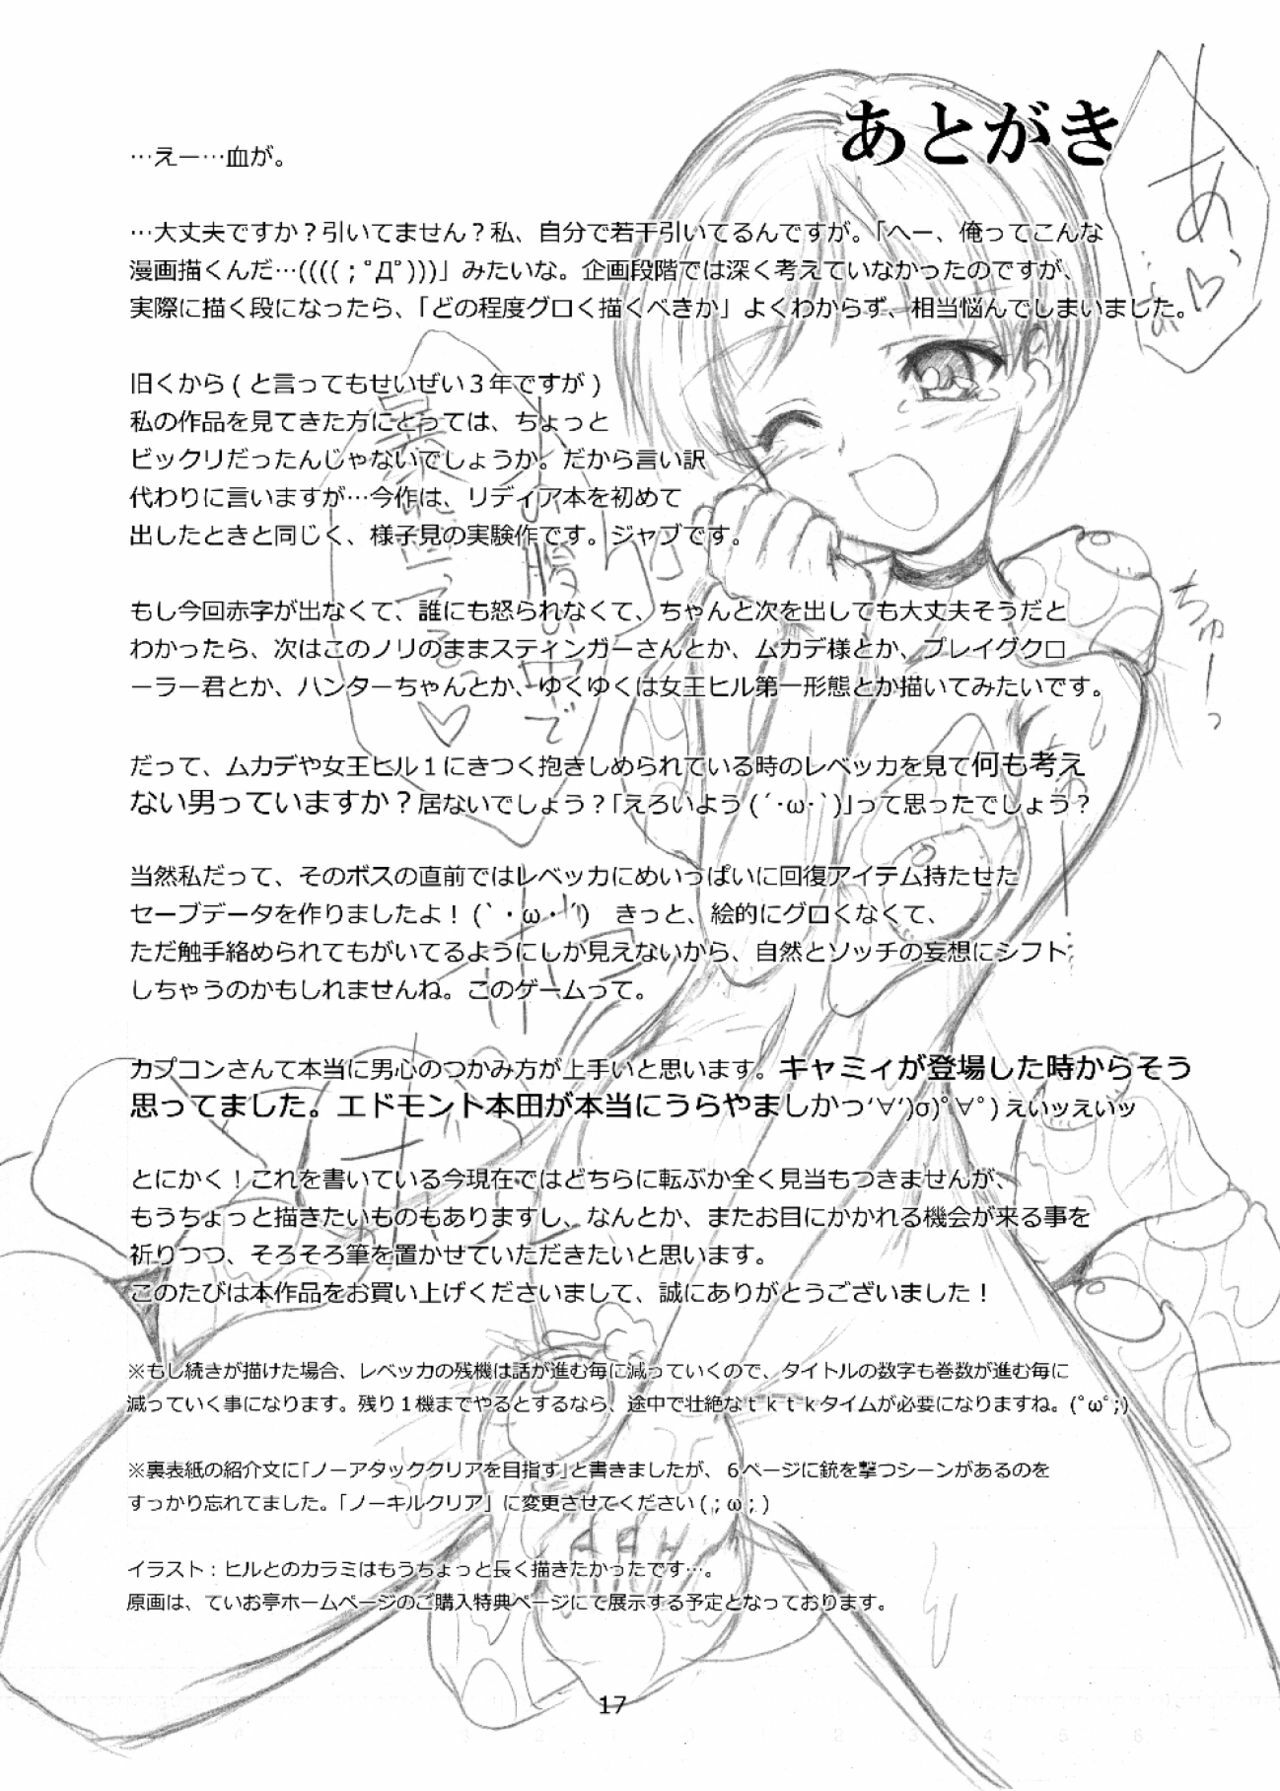 あとがき
…えー…血が。
…大丈夫ですか？引いてません？私、自分で若干引いてるんですが。「へー、俺ってこんな
漫画描くんだ…((((；ﾟДﾟ)))」みたいな。企画段階では深く考えていなかったのですが、
実際に描く段になったら、「どの程度グロく描くべきか」よくわからず、相当悩んでしまいました。
旧くから(と言ってもせいぜい３年ですが)
私の作品を見てきた方にとっては、ちょっと
ビックリだったんじゃないでしょうか。だから言い訳
代わりに言いますが…今作は、リディア本を初めて
出したときと同じく、様子見の実験作です。ジャブです。
もし今回赤字が出なくて、誰にも怒られなくて、ちゃんと次を出しても大丈夫そうだと
わかったら、次はこのノリのままスティンガーさんとか、ムカデ様とか、プレイグクロ
ーラー君とか、ハンターちゃんとか、ゆくゆくは女王ヒル第一形態とか描いてみたいです。
だって、ムカデや女王ヒル１にきつく抱きしめられている時のレベッカを見て何も考え
ない男っていますか？居ないでしょう？「えろいよう(´･ω･`)」って思ったでしょう？
当然私だって、そのボスの直前ではレベッカにめいっぱいに回復アイテム持たせた
セーブデータを作りましたよ！(｀・ω・´)　きっと、絵的にグロくなくて、
ただ触手絡められてもがいてるようにしか見えないから、自然とソッチの妄想にシフト
しちゃうのかもしれませんね。このゲームって。
カプコンさんて本当に男心のつかみ方が上手いと思います。キャミィが登場した時からそう
思ってました。エドモント本田が本当にうらやましかっ‘∀‘)σ)ﾟ∀ﾟ)えいッえいッ
とにかく！これを書いている今現在ではどちらに転ぶか全く見当もつきませんが、
もうちょっと描きたいものもありますし、なんとか、またお目にかかれる機会が来る事を
祈りつつ、そろそろ筆を置かせていただきたいと思います。
このたびは本作品をお買い上げくださいまして、誠にありがとうございました！
※もし続きが描けた場合、レベッカの残機は話が進む毎に減っていくので、タイトルの数字も巻数が進む毎に
減っていく事になります。残り１機までやるとするなら、途中で壮絶なｔｋｔｋタイムが必要になりますね。(ﾟωﾟ;)
※裏表紙の紹介文に「ノーアタッククリアを目指す」と書きましたが、６ページに銃を撃つシーンがあるのを
すっかり忘れてました。「ノーキルクリア」に変更させてください(；ω；)
イラスト：ヒルとのカラミはもうちょっと長く描きたかったです…。
原画は、ていお亭ホームページのご購入特典ページにて展示する予定となっております。
ちゅーっ
17